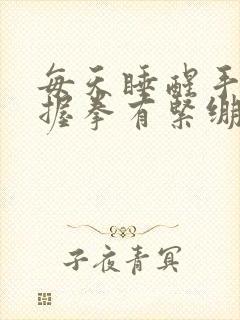 每天睡醒手
握拳有紧绷
子夜青冥